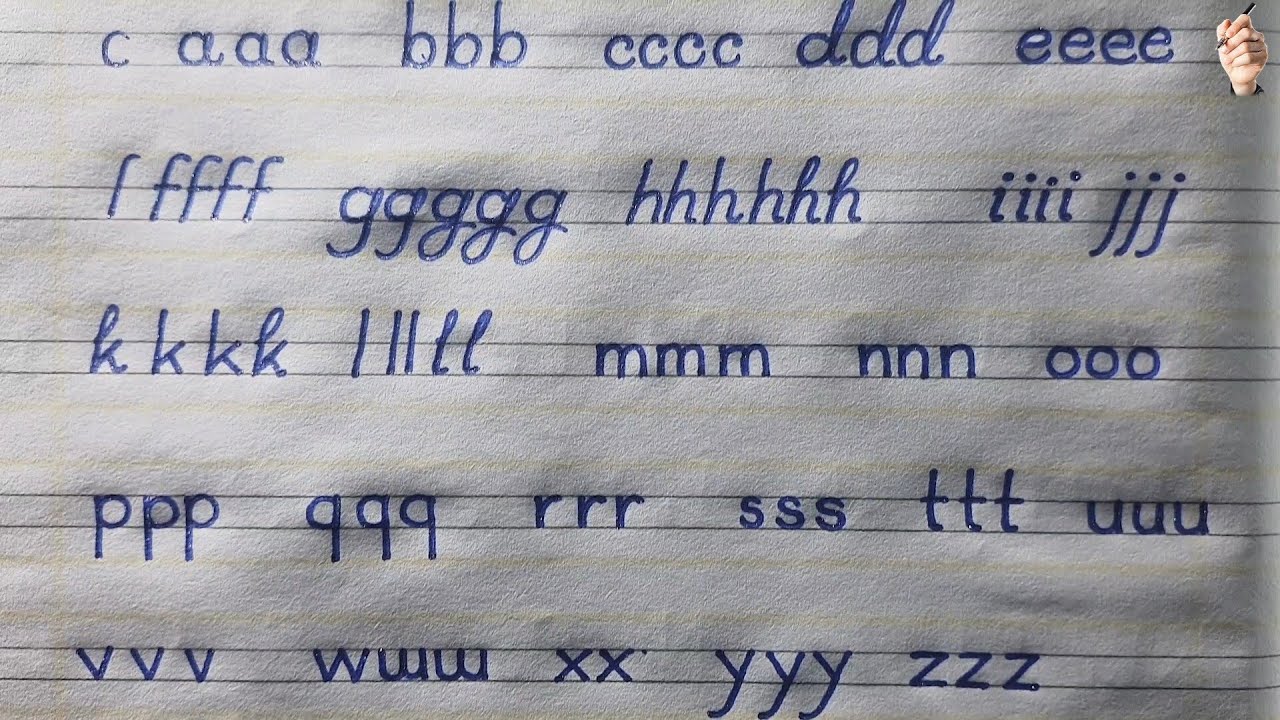 c aaa bbb cccc ddd eeee
l ffff ggggg hhhhhh iiii jjj
k k k k l l l l l mmm nnn ooo
ppp qqq rrr sss ttt uuu
vvv www xx yyy zzz